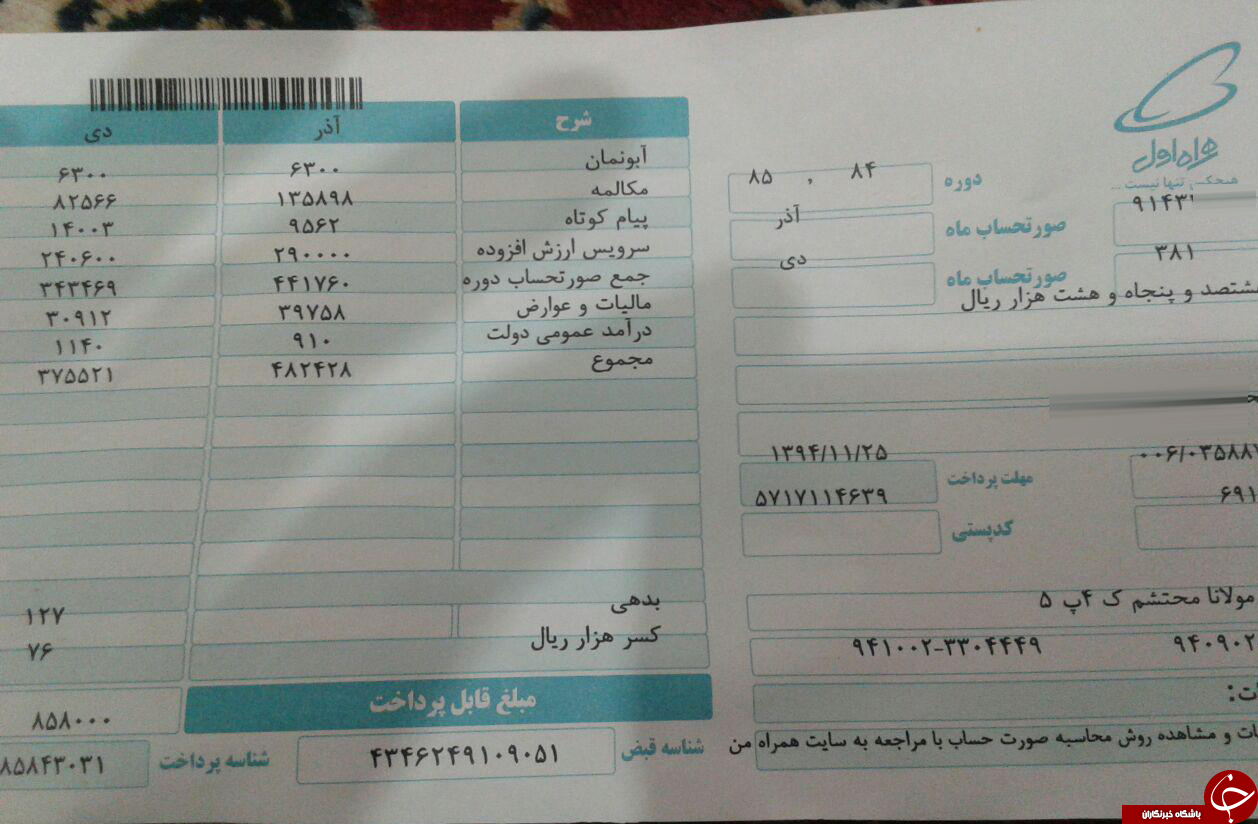 همراه اول
هیچکس تنها نیست ...
دوره ۸۴ , ۸۵
صورتحساب ماه آذر
صورتحساب ماه دی
۳۸۱
پنجاه و هشت هزار ریال
مهلت پرداخت ۱۳۹۴/۱۱/۲۵
کدپستی ۵۷۱۷۱۱۴۶۳۹
مولانا محتشم ک ۴پ ۵
۹۴۱۰۰۲-۳۳۰۴۴۴۹
و مشاهده روش محاسبه صورت حساب با مراجعه به سایت همراه من
شرح آذر دی
آبونمان ۶۳۰۰ ۶۳۰۰
مکالمه ۱۳۵۸۹۸ ۸۲۵۶۶
پیام کوتاه ۹۵۶۲ ۱۴۰۰۳
سرویس ارزش افزوده ۲۹۰۰۰۰ ۲۴۰۶۰۰
جمع صورتحساب دوره ۴۴۱۷۶۰ ۳۴۳۴۶۹
مالیات و عوارض ۳۹۷۵۸ ۳۰۹۱۲
درآمد عمومی دولت ۹۱۰ ۱۱۴۰
مجموع ۴۸۲۴۲۸ ۳۷۵۵۲۱
بدهی ۱۲۷
کسر هزار ریال ۷۶
مبلغ قابل پرداخت ۸۵۸۰۰۰
شناسه قبض ۴۳۴۶۲۴۹۱۰۹۰۵۱
شناسه پرداخت ۸۵۸۴۳۰۳۱
باشگاه خبرنگاران